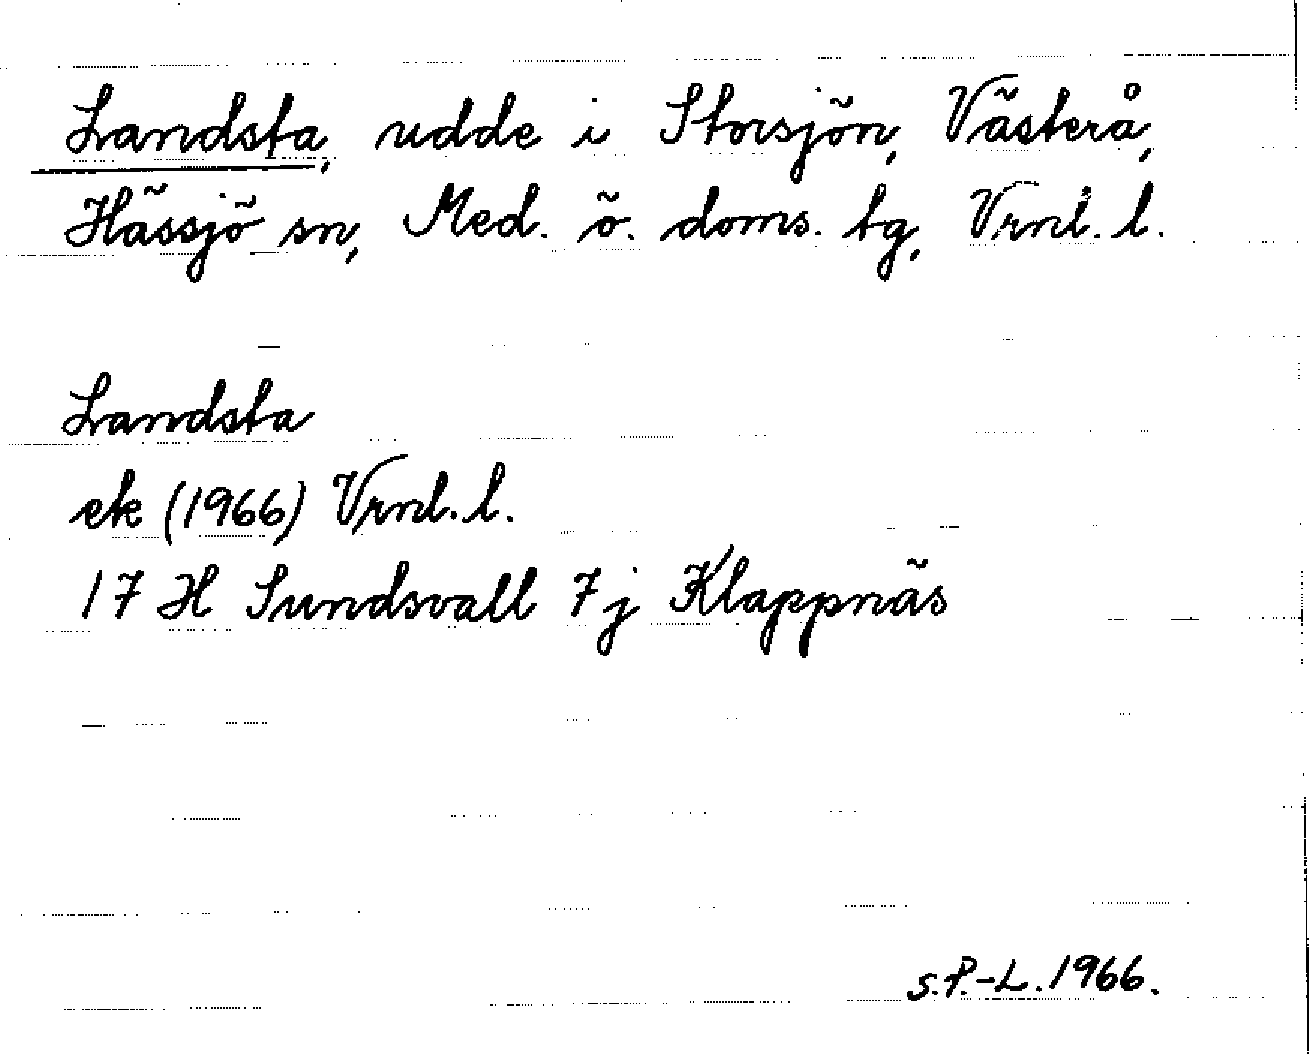 Landsta, udde i Storsjön, Västerå,
Hässjö sn, Med. ö. doms. tg, Vrnl. l.
Landsta
ek (1966) Vrnl. l.
17 H Sundsvall 7j Klappnäs
S.P.-L. 1966.